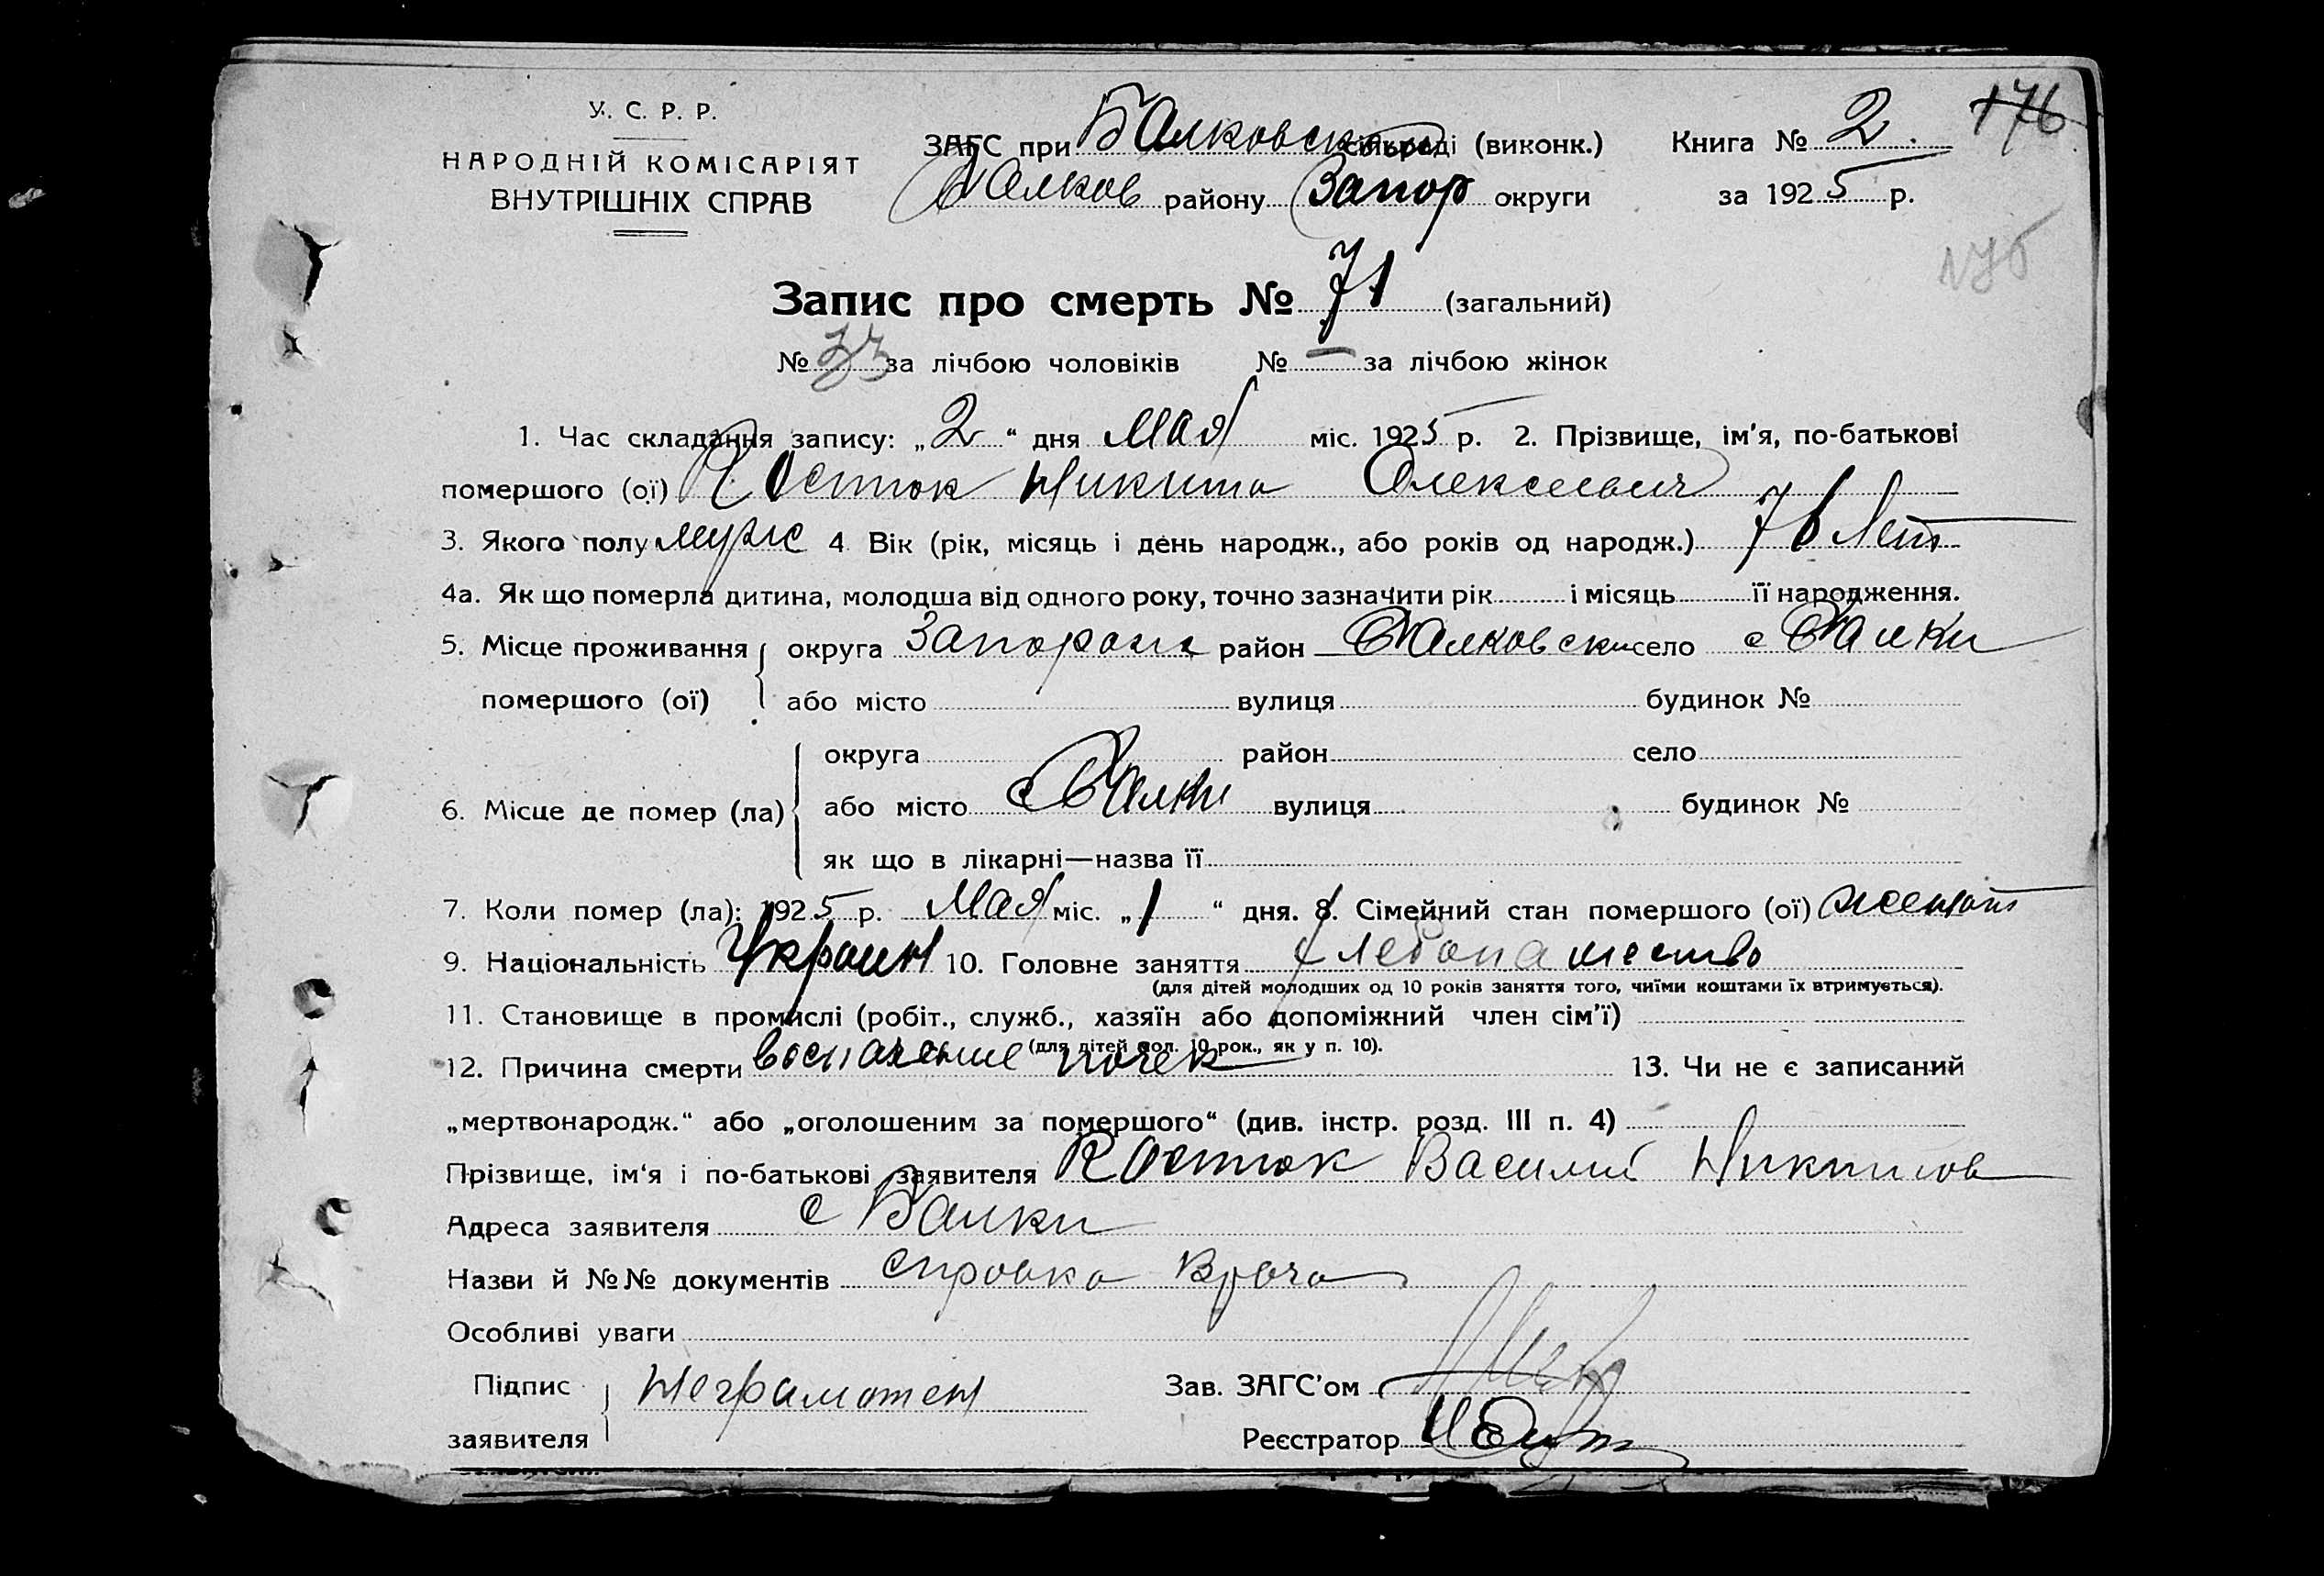 У. С. Р. Р.
НАРОДНІЙ КОМІСАРІЯТ
ВНУТРІШНІХ СПРАВ
ЗАГС при Балковской сільраді (виконк.) Книга № 2. 176
Балков району Запор округи за 1925 р.
176
Запис про смерть № 71 (загальний)
№ 33 за лічбою чоловіків № — за лічбою жінок
1. Час складання запису: „2“ дня Мая міс. 1925 р. 2. Прізвище, ім'я, по-батькові
помершого (ої) Костюк Никита Олексеевич
3. Якого полу муж 4 Вік (рік, місяць і день народж., або років од народж.) 76 Лет
4а. Як що померла дитина, молодша від одного року, точно зазначити рік і місяць її народження.
5. Місце проживання помершого (ої) округа Запорож район Балковски село с Балки
або місто вулиця будинок №
6. Місце де помер (ла) округа район село
або місто с Балки вулиця будинок №
як що в лікарні—назва її
7. Коли помер (ла): 1925 р. Мая міс. „1“ дня. 8. Сімейний стан помершого (ої) женат
9. Національність Украин 10. Головне заняття хлебопашество
(для дітей молодших од 10 років заняття того, чиїми коштами їх втримується).
11. Становище в промислі (робіт., служб., хазяїн або допоміжний член сім'ї)
(для дітей мол. 10 рок., як у п. 10).
12. Причина смерти воспаление почек 13. Чи не є записаний
„мертвонародж.“ або „оголошеним за помершого“ (див. інстр. розд. III п. 4)
Прізвище, ім'я і по-батькові заявителя Костюк Василий Никитов
Адреса заявителя с Балки
Назви й №№ документів справка Врача
Особливі уваги
Підпис заявителя Неграмотен Зав. ЗАГС'ом
Реєстратор